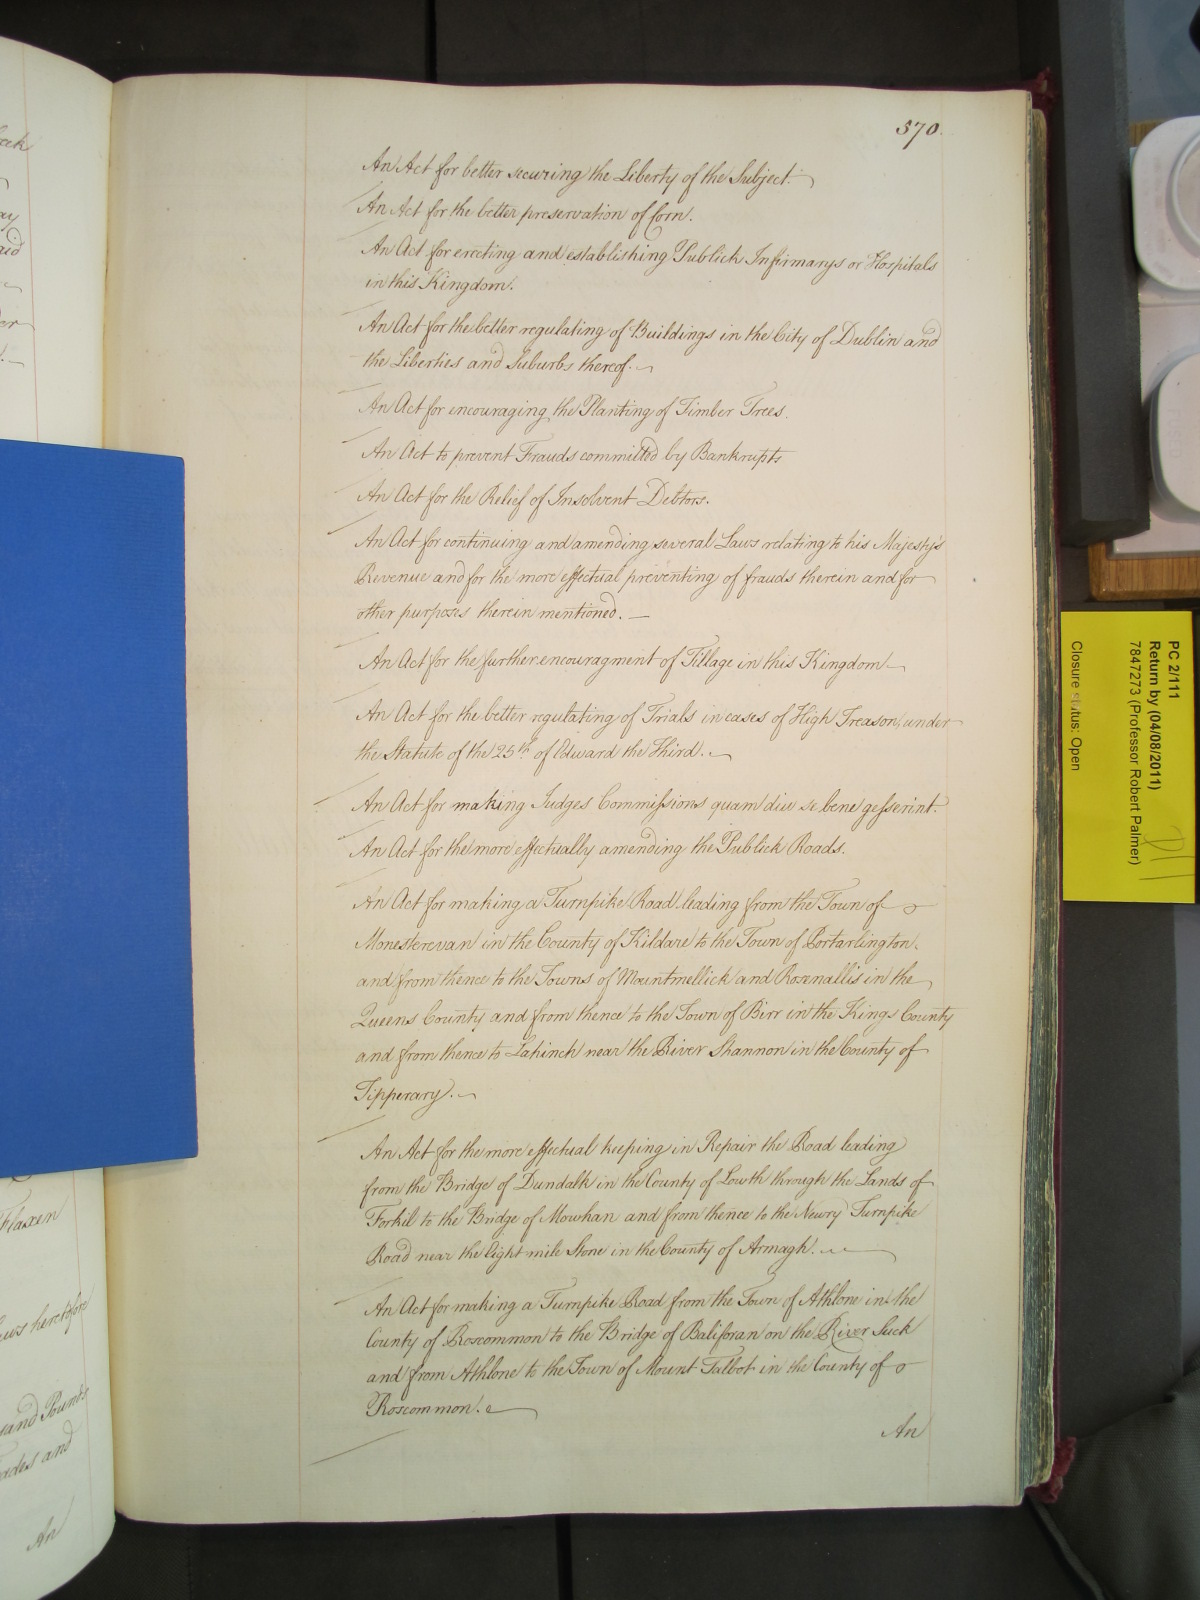 570.
An Act for better securing the Liberty of the Subject.
An Act for the better preservation of Corn.
An Act for erecting and establishing Publick Infirmarys or Hospitals
in this Kingdom.
An Act for the better regulating of Buildings in the City of Dublin and
the Liberties and Suburbs thereof.
An Act for encouraging the Planting of Timber Trees.
An Act to prevent Frauds committed by Bankrupts
An Act for the Relief of Insolvent Debtors.
An Act for continuing and amending several Laws relating to his Majesty's
Revenue and for the more effectual preventing of frauds therein and for
other purposes therein mentioned. —
An Act for the further encouragment of Tillage in this Kingdom
An Act for the better regulating of Trials in cases of High Treason under
the Statute of the 25th. of Edward the Third.
An Act for making Judges Commissions quam diu se bene gesserint.
An Act for the more effectually amending the Publick Roads.
An Act for making a Turnpike Road leading from the Town of
Monesterevan in the County of Kildare to the Town of Portarlington.
and from thence to the Towns of Mountmellick and Rosenallis in the
Queens County and from thence to the Town of Birr in the Kings County
and from thence to Lahinch near the River Shannon in the County of
Tipperary.
An Act for the more effectual keeping in Repair the Road leading
from the Bridge of Dundalk in the County of Lowth through the Lands of
Forkil to the Bridge of Mowhan and from thence to the Newry Turnpike
Road near the Eight mile Stone in the County of Armagh.
An Act for making a Turnpike Road from the Town of Athlone in the
County of Roscommon to the Bridge of Baliforan on the River Suck
and from Athlone to the Town of Mount Talbot in the County of
Roscommon.
An
PC 2/111
Return by (04/08/2011)
7847273 (Professor Robert Palmer)
Closure status: Open
Flaxen
Laws heretofore
and Pounds
and
An